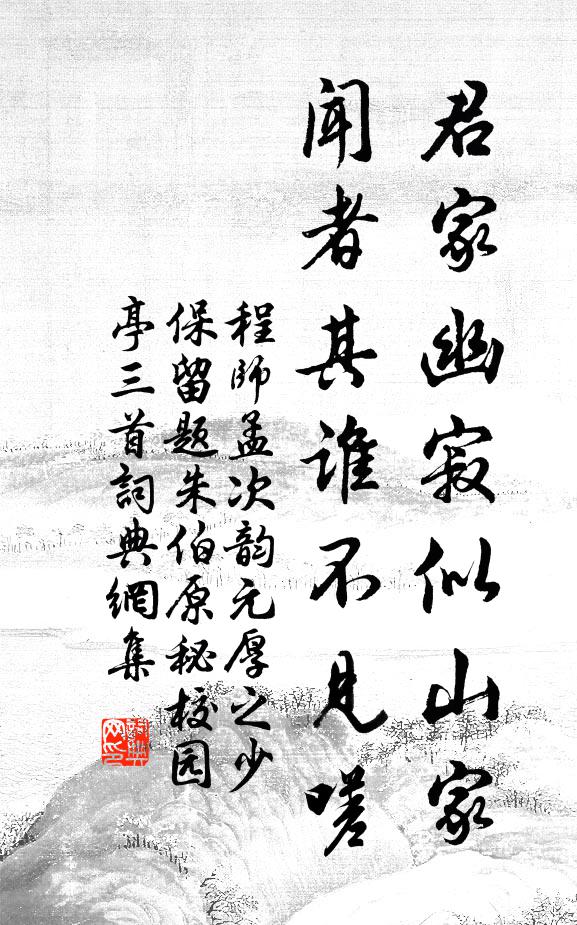 君家幽寂似山家
闻者其谁不见嗟
程师孟次韵元厚之少
保留题朱伯原秘校园
亭三首詞典網集